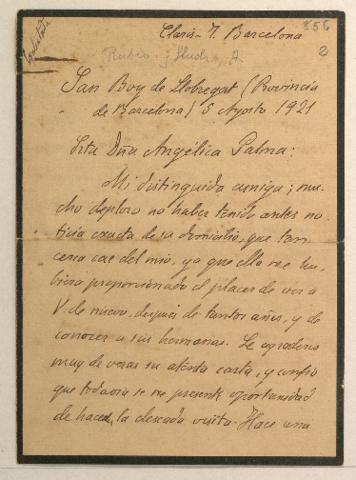 856
2
Contestada
Claris - 7. Barcelona
Rubió y Lluch, A.
San Boy de Llobregat (Provincia
de Barcelona) 5 Agosto 1921
Srta Dña Angélica Palma:
Mi distinguida amiga; mu-
cho deploro no haber tenido antes no-
ticia exacta de su domicilio, que tan
cerca cae del mio, ya que ello me hu-
biera proporcionado el placer de ver a
V. de nuevo, después de tantos años, y de
conocer a sus hermanas. Le agradezco
muy de veras su atenta carta, y confio
que todavia se me presente oportunidad
de hacer, la deseada visita. Hace una